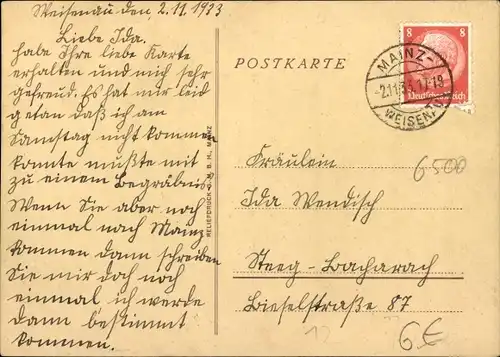 Weisenau den, 2.11.1933
Liebe Ida.
habe Ihre liebe Karte
erhalten und mich sehr
gefreud. Es hat mir leid
getan daß ich am
Samstag nicht kommen
konnte mußte mit
zu einem Begräbnis.
Wenn Sie aber noch
einmal nach Mainz
kommen dann schreiben
Sie mir doch noch
einmal ich werde
dann bestimmt
kommen.
RELIEFDRUCK G.M.B.H., MAINZ
POSTKARTE
8 8
Deutsches Reich
MAINZ-
-2.11.33.17-18
WEISENAU
Fräulein
6500
Ida Wendisch
Steeg-Bacharach
Bieselstraße 87
12
6€